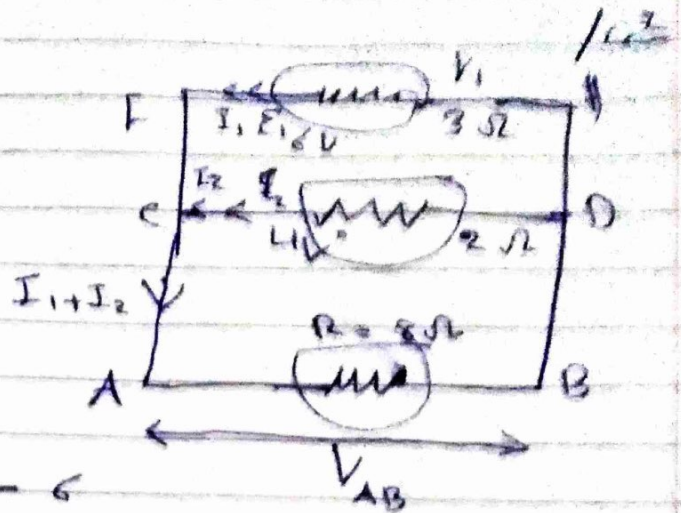 V₁
I₁ E₁ 6V 3 Ω
I₂
C D
4V 2 Ω
I₁ + I₂
R = 8 Ω
A B
V_AB
- 6